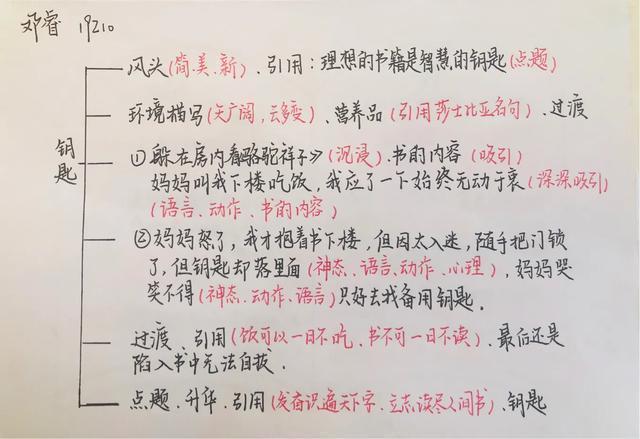 邓睿 19210
风头(简.美.新)、引用：理想的书籍是智慧的钥匙(点题)
环境描写(天广阔,云多变)、营养品(引用莎士比亚名句)、过渡
钥匙
①躲在房内看骆驼祥子》(沉浸)、书的内容(吸引)
妈妈叫我下楼吃饭,我应了一下始终无动于衷(深深吸引)
(语言、动作、书的内容)
②妈妈怒了,我才抱着书下楼,但因太入迷,随手把门锁
了,但钥匙却落里面(神态、语言、动作、心理),妈妈哭
笑不得(神态、动作、语言)只好去找备用钥匙.
过渡、引用(饭可以一日不吃、书不可一日不读)、最后还是
陷入书中无法自拔.
点题、升华、引用(发奋识遍天下字、立志读尽人间书)、钥匙